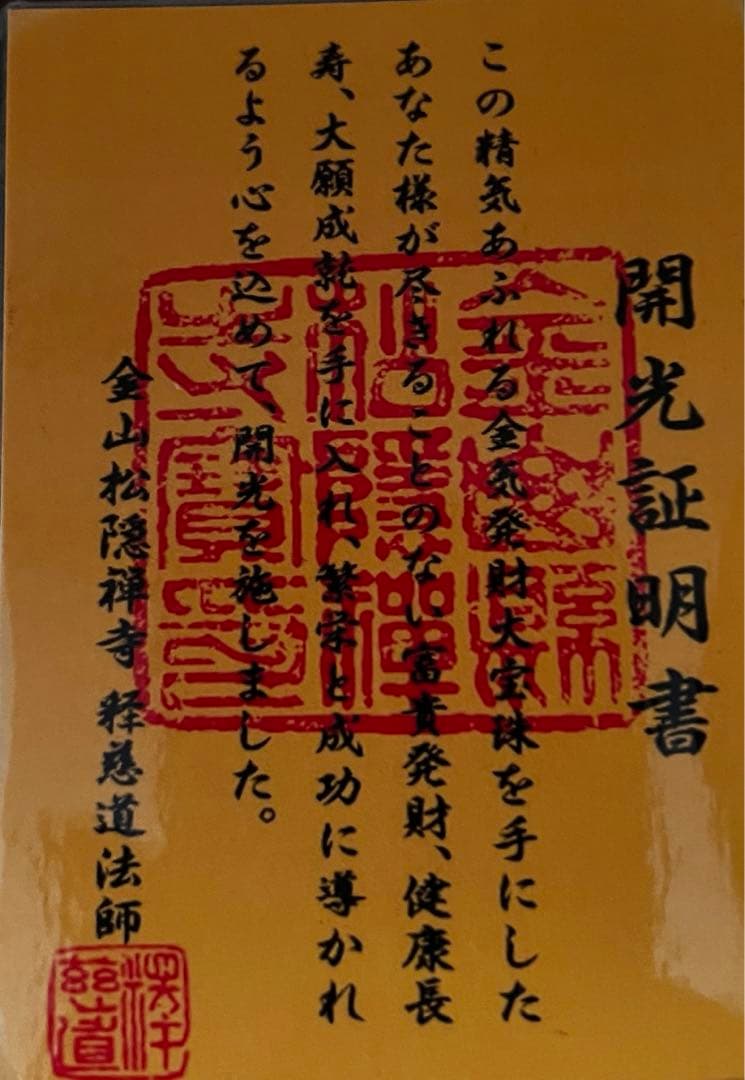 開光証明書
この精気あふれる金気発財大宝珠を手にした
あなた様が尽きることのない富貴発財、健康長
寿、大願成就を手に入れ、繁栄と成功に導かれ
るよう心を込めて、開光を施しました。
金山松隠禅寺 释慈道法師